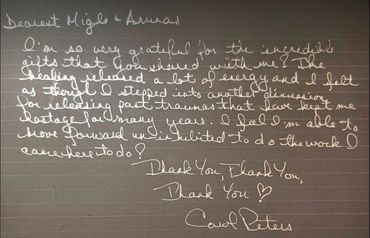 Dearest Migle & Arunas
I'm so very grateful for the incredible
gifts that you shared with me! The
healing released a lot of energy and I felt
as though I stepped into another dimension
for releasing past traumas that have kept me
hostage for many years. I feel I'm able to
move forward uninhibited to do the work I
came here to do!
Thank You, Thank You,
Thank You ♡
Carol Peters